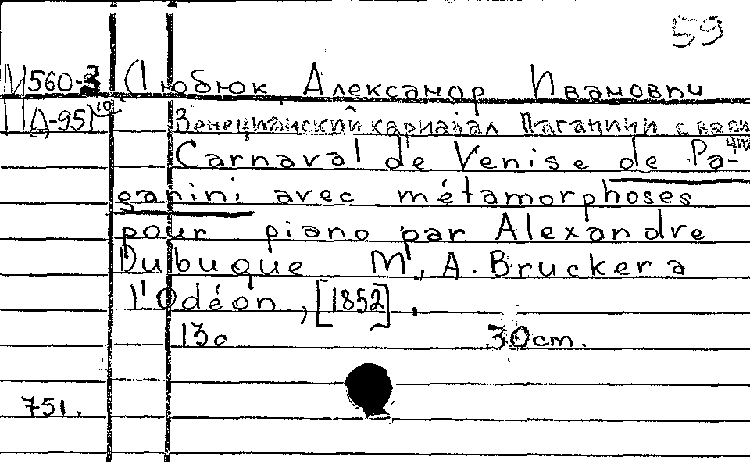 59
И560-2 Дюбюк, Александр Иванович
Д-951 Венецианский карнавал Паганини с вари
Carnaval de Venise de Pa-
ganini avec métamorphoses
pour piano par Alexandre
Dubuque M, A. Brucker a
l'Odéon, [1852].
13c 30cm.
751.